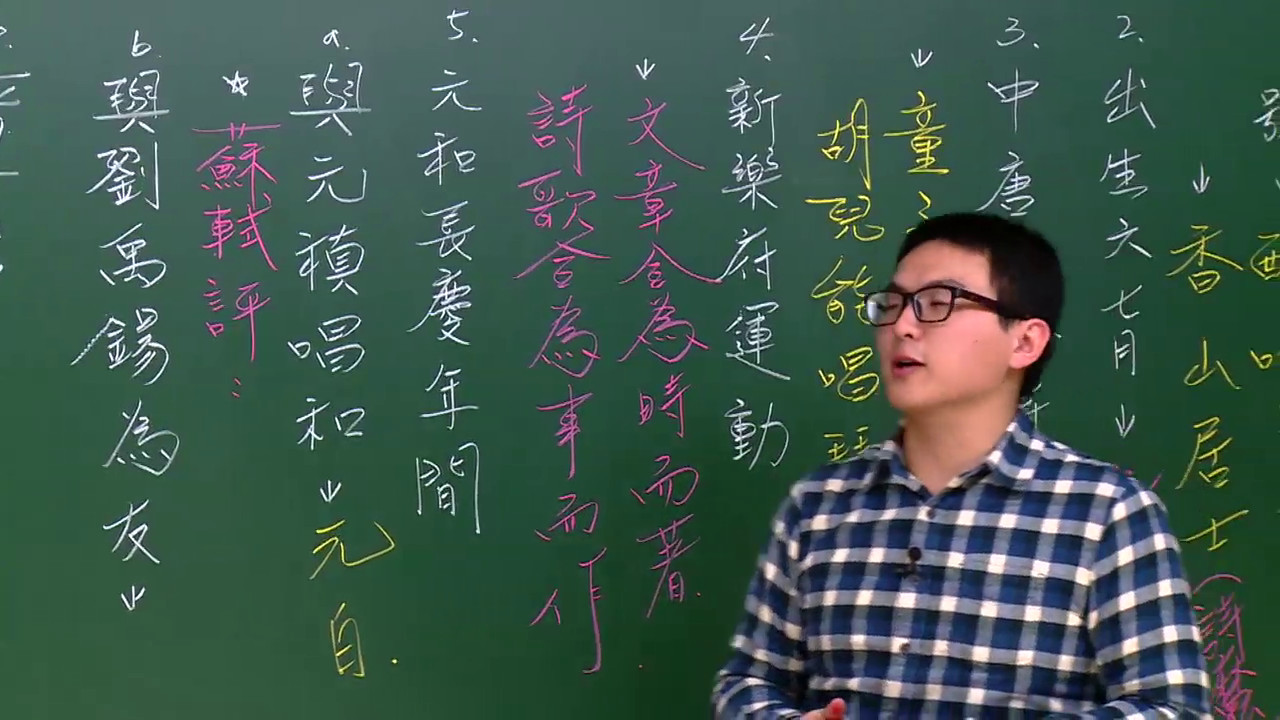 号
西
香山居士(詩
2.出生六七月↓
3.中唐
↓童
胡兒能唱
4.新樂府運動
↓文章合為時而著.
詩歌合為事而作.
5.元和長慶年間
a.與元稹唱和↓元白.
*蘇軾評：
b.與劉禹錫為友↓